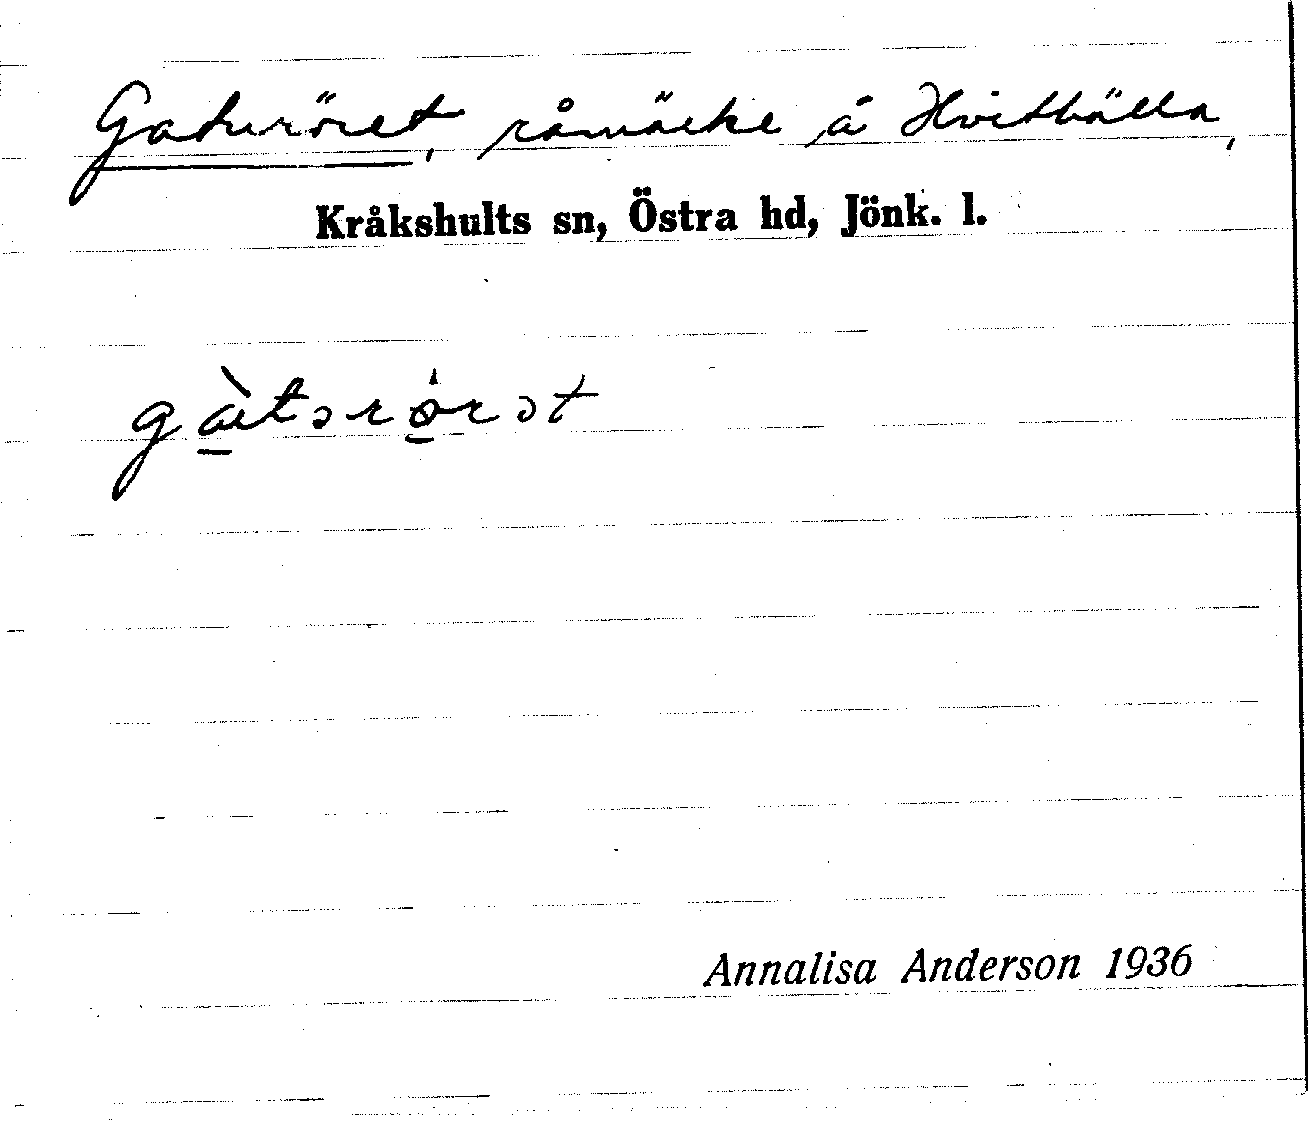 Gaturöret, råmärke å Hvithälla,
Kråkshults sn, Östra hd, Jönk. l.
gàtərørət
Annalisa Anderson 1936